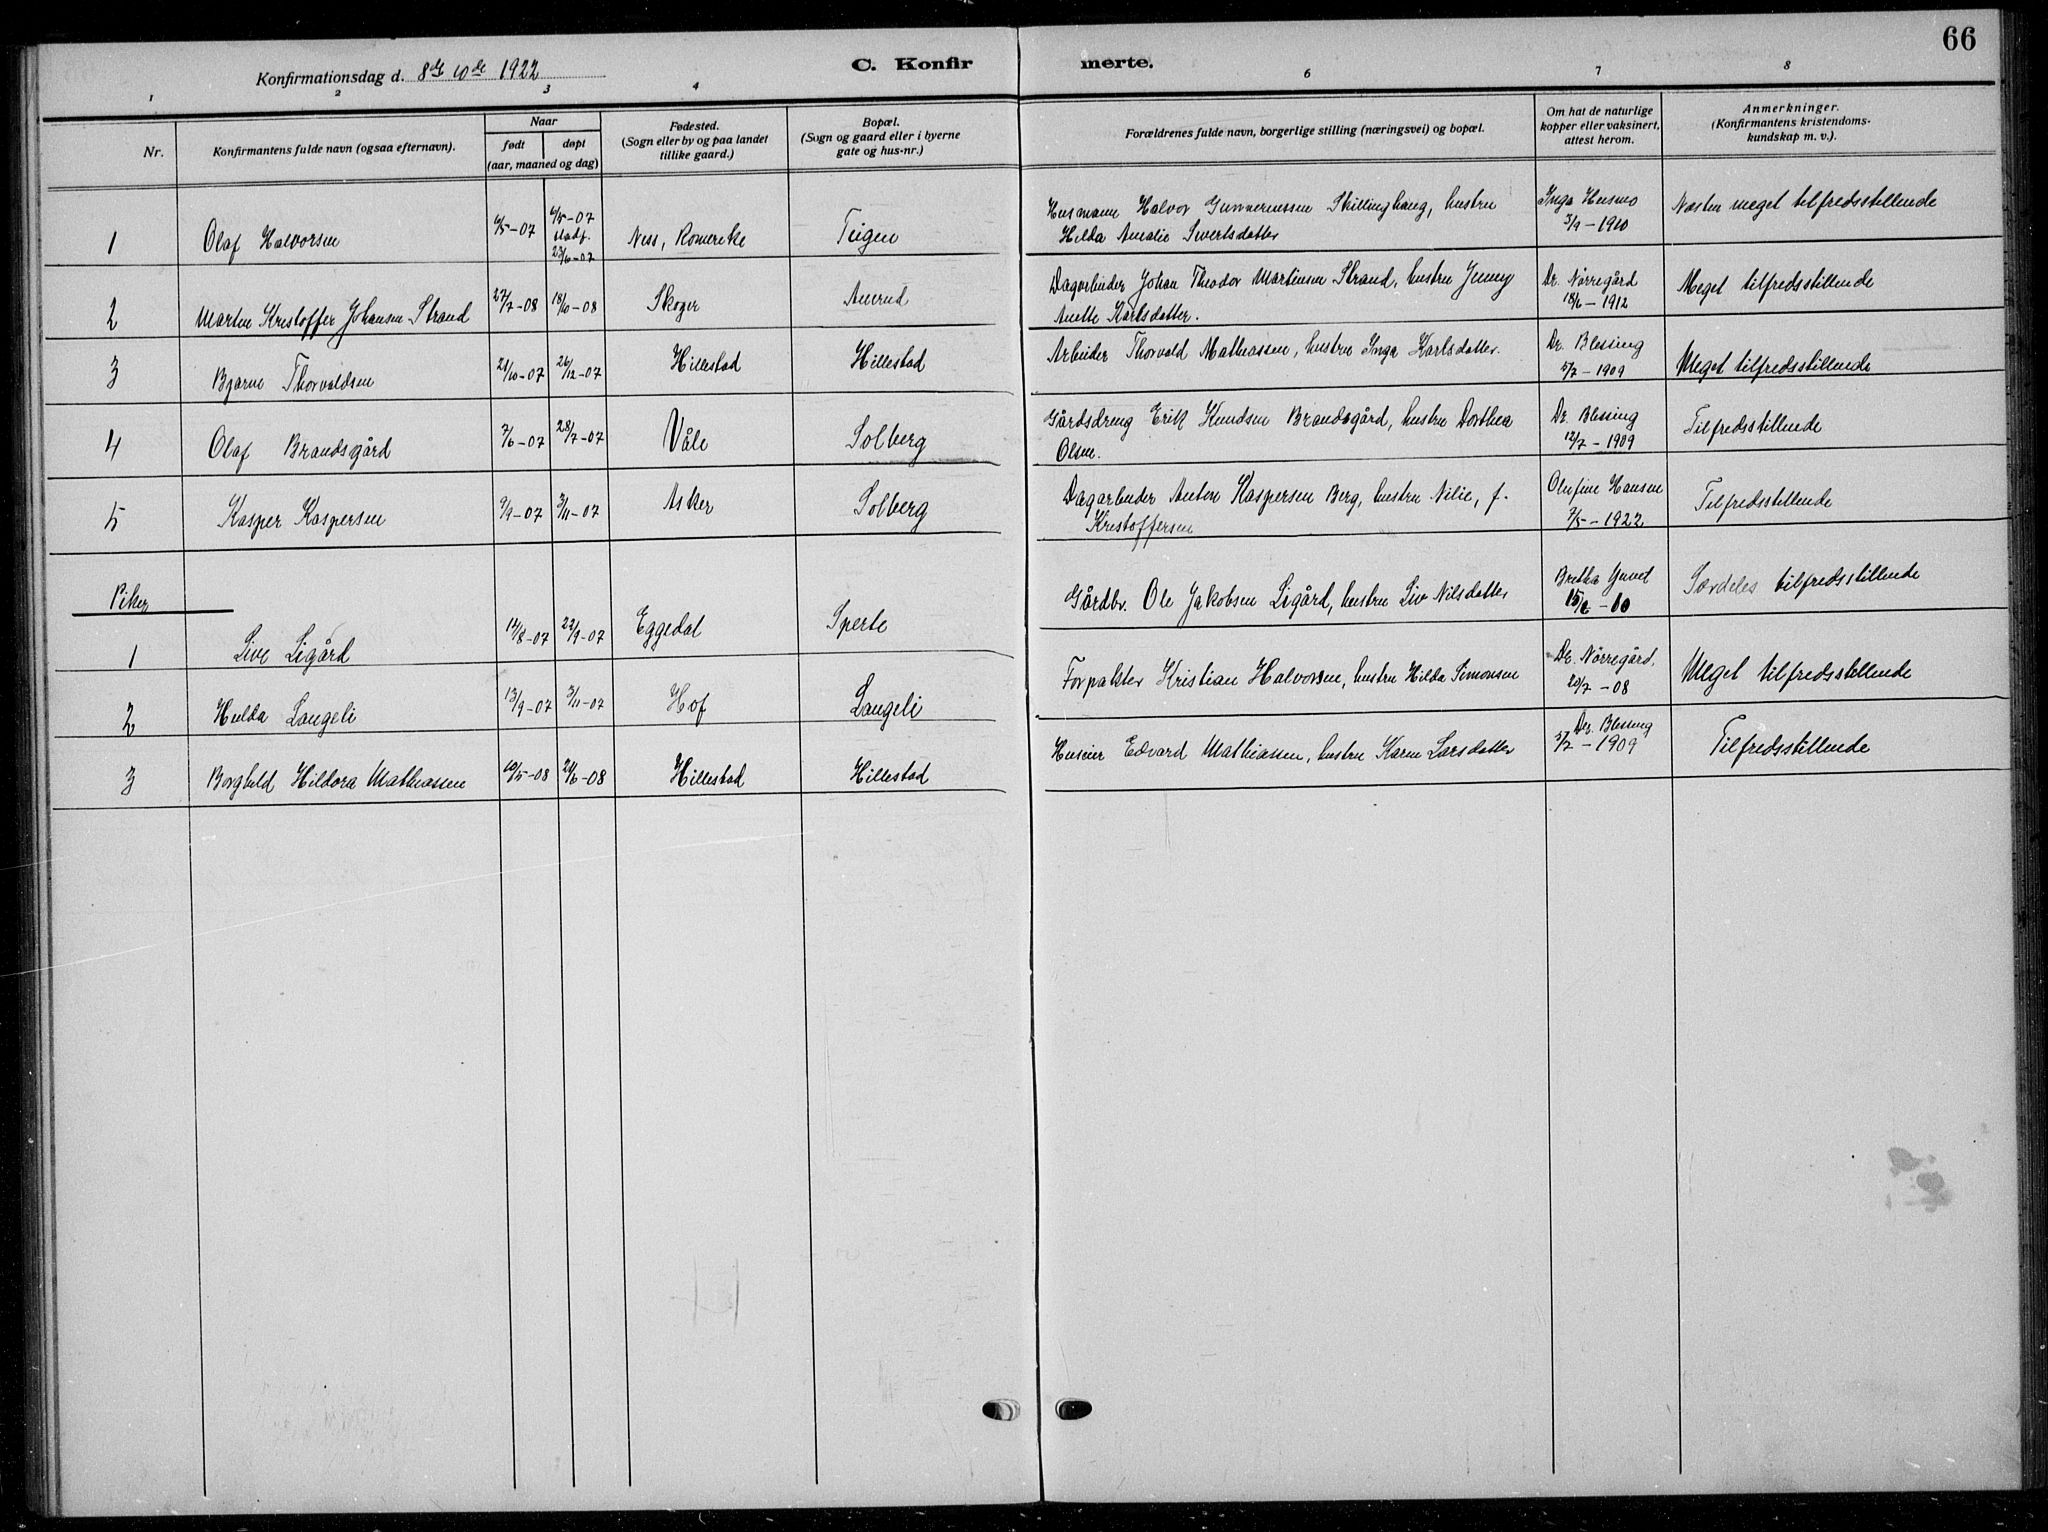 66
Konfirmationsdag d. 8de 10de 1922
C. Konfir merte.
1 2 3 4 6 7 8
Nr.
Konfirmantens fulde navn (ogsaa efternavn).
Naar
født døpt
(aar, maaned og dag)
Fødested.
(Sogn eller by og paa landet
tillike gaard.)
Bopæl.
(Sogn og gaard eller i byerne
gate og hus-nr.)
Forældrenes fulde navn, borgerlige stilling (næringsvei) og bopæl.
Om hat de naturlige
kopper eller vaksinert,
attest herom.
Anmerkninger.
(Konfirmantens kristendoms-
kundskap m. v.).
1 Olaf Halvorsen 4/5-07 4/5-07 Ness, Romerike Teigen
23/6-07
Husmann Halvor Gunneriussen Skillinghaug, hustru
Hilda Amalie Sivertsdatter
Inga Husmo
3/9-1910
Næsten meget tilfredsstillende
2 Marten Kristoffer Johansen Strand 27/7-08 18/10-08 Skoger Amrud
Dagarbeider Johan Theodor Martinsen Strand, hustru Jenny
Anette Karlsdatter.
Dr. Nørregård
18/6-1912
Meget tilfredsstillende
3 Bjarne Thorvaldsen 21/10-07 26/12-07 Hillestad Hillestad
Arbeider Thorvald Mathiassen, hustru Inga Karlsdatter.
Dr. Blessing
5/7-1909
Meget tilfredsstillende
4 Olaf Brandsgård 7/6-07 28/7-07 Våle Solberg
Gårdsdreng Erik Knudsen Brandsgård, hustru Dorthea
Olsen.
Dr. Blessing
12/7-1909
Tilfredsstillende
5 Kasper Kaspersen 9/9-07 3/11-07 Asker Solberg
Dagarbeider Anton Kaspersen Berg, hustru Nilie, f.
Kristoffersen
Olufine Hansen
7/5-1922
Tilfredsstillende
Piker
1 Live Ligård 14/8-07 22/9-07 Eggedal Sperle
Gårdbr. Ole Jakobsen Ligård, hustru Liv Nilsdatter
Bretha
15/6-10
Særdeles tilfredsstillende
2 Hulda Langeli 13/9-07 3/11-07 Hof Langeli
Forpakter Kristian Halvorsen, hustru Hilda Simonsen
Dr. Nørregård.
20/7-08
Meget tilfredsstillende
3 Borghild Hildora Mathiassen 10/5-08 21/6-08 Hillestad Hillestad
Huseier Edvard Mathiassen, hustru Karen Larsdatter
Dr. Blessing
5/7-1909
Tilfredsstillende